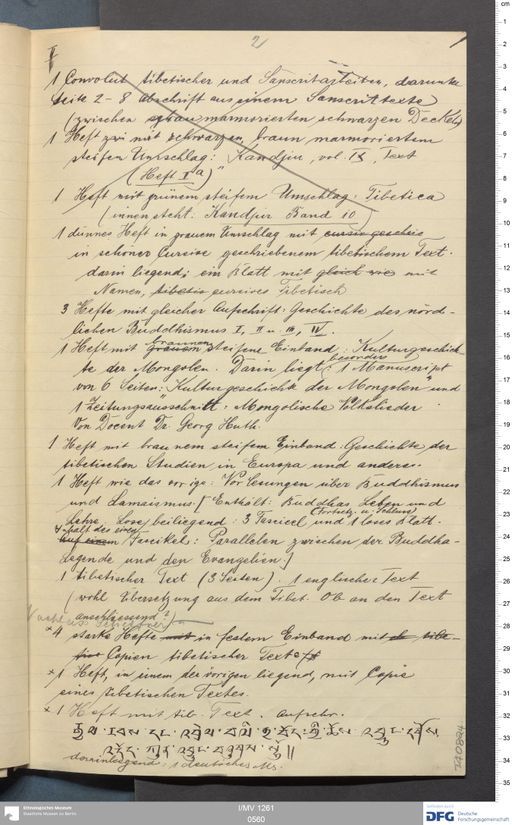 2
1 Convolut tibetischer und Sanscritarbeiten, darunter
Seite 2-8 Abschrift aus einem Sanscrittexte
(zwischen schwarz marmorierten schwarzen Deckeln)
1 Heft mit schwarzem, braun marmoriertem
steifen Umschlag: Kandjur, vol. IX, Text
(Heft IIa)
1 Heft mit grünem steifem Umschlag: Tibetica
(innen steht: Kandjur Band 10)
1 dünnes Heft in grauem Umschlag mit
in schöner Cursive geschriebenem tibetischem Text.
darin liegend; ein Blatt mit gleich wie mit
Namen, tibetis cursives Tibetisch
3 Hefte mit gleicher Aufschrift: Geschichte des nörd-
lichen Buddhismus I, II u. III, IV.
1 Heft mit grauem braunem steifem Einband: Kulturgeschich-
te der Mongolen. Darin liegt besonders: 1 Manuscript
von 6 Seiten: "Kulturgeschichte der Mongolen" und
1 Zeitungsausschnitt: Mongolische Volkslieder
Von Docent Dr. Georg Huth.
1 Heft mit braunem steifem Einband: Geschichte der
tibetischen Studien in Europa und anderes.
1 Heft wie das vorige: Vorlesungen über Buddhismus
und Lamaismus [Enthält: Buddhas Leben und
Lehre. Lose beiliegend: 3 Fascicel (Fortsetz. u. Schluss) und 1 loses Blatt.
Inhalt des einen Fascikel: Parallelen zwischen der Buddha-
Legende und den Evangelien.]
1 tibetischer Text (3 Seiten). 1 englischer Text
(wohl Übersetzung aus dem Tibet. Ob an den Text
anschliessend?)
×4 starke Hefte mit in festem Einband mit tibe-
tist Copien tibetischer Texte
×1 Heft, in einem der vorigen liegend, mit Copie
eines tibetischen Textes.
×1 Heft mit tib. Text. Aufschr.
darinliegend: 1 deutsches Ms.
I/MV 1261
0560
Ethnologisches Museum
Staatliche Museen zu Berlin
DFG Deutsche
Forschungsgemeinschaft